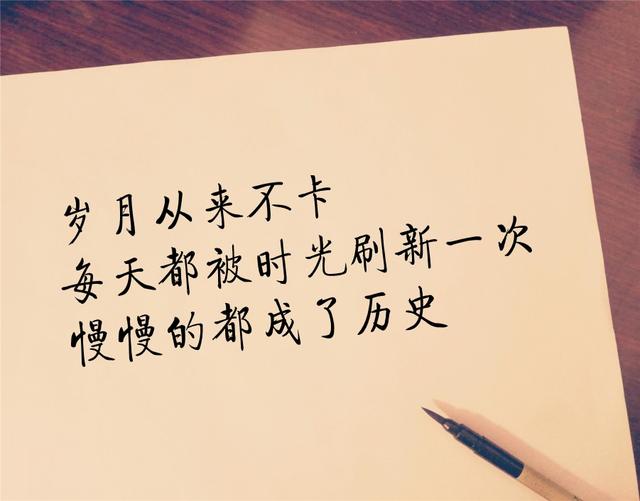 岁月从来不卡
每天都被时光刷新一次
慢慢的都成了历史